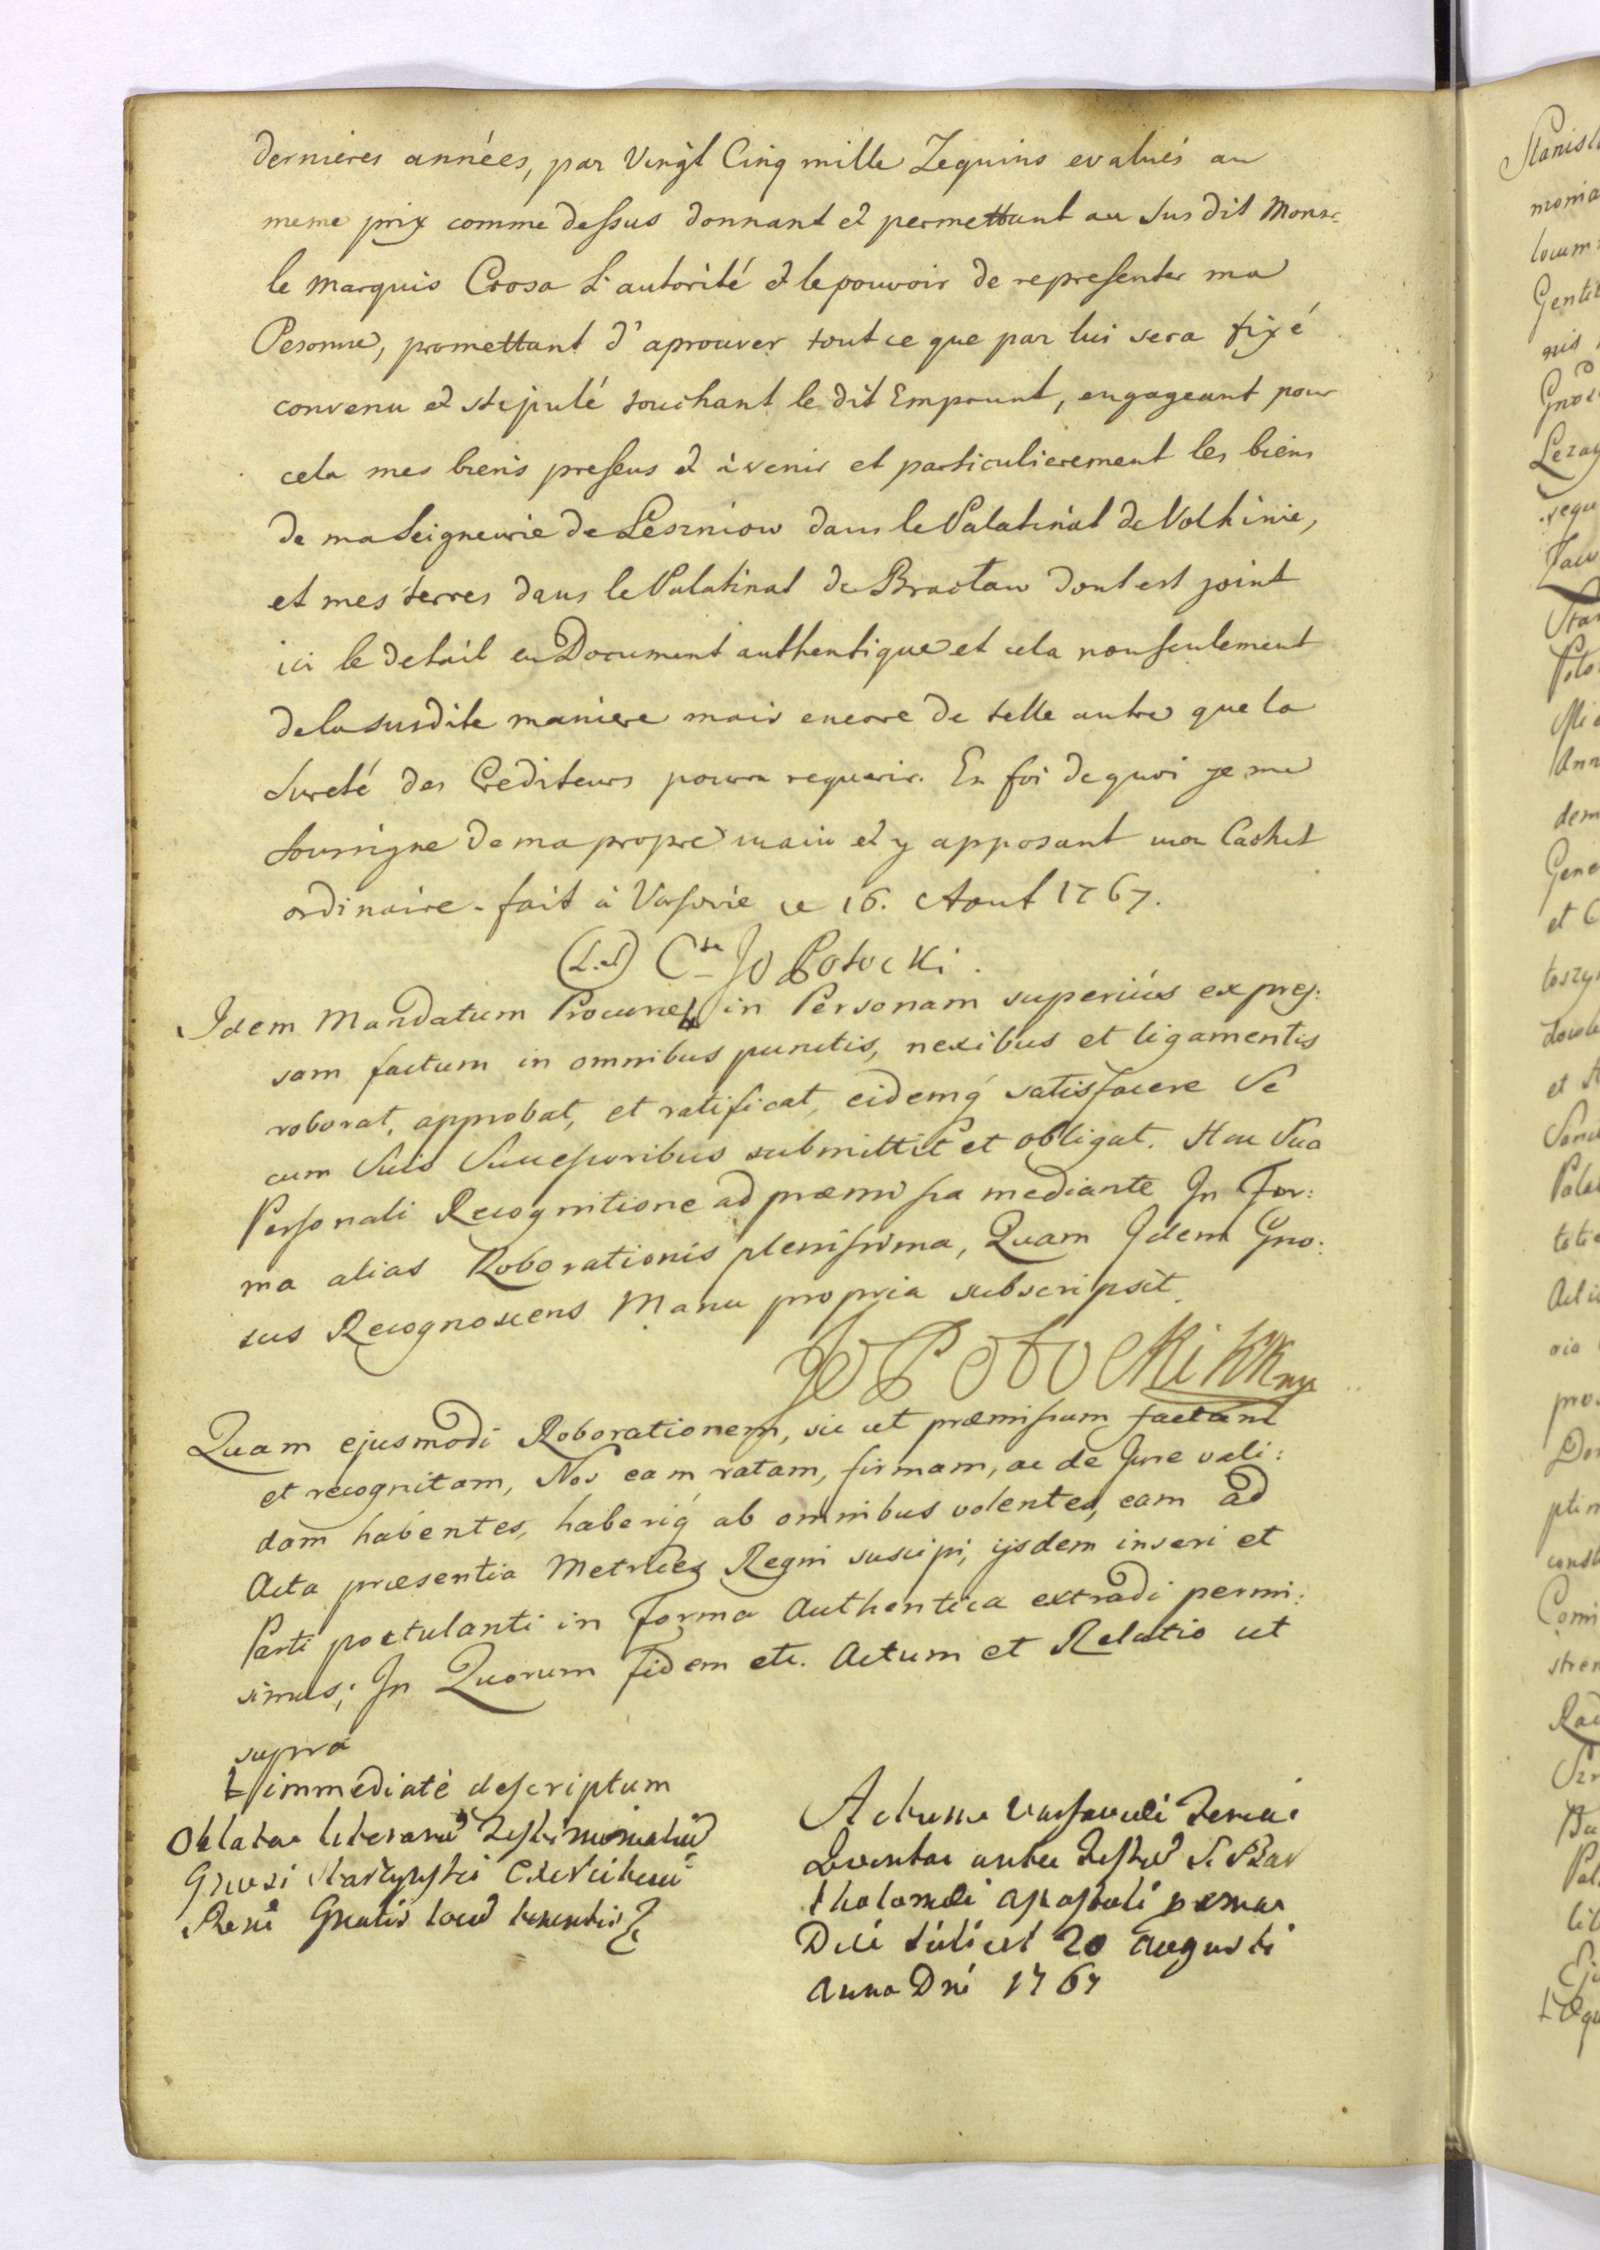 dernieres années, par Vingt Cinq mille Zequins evalués au
meme prix comme dessus donnant et permettant au Susdit Monsr
le Marquis Crosa L'autorité et le pouvoir de representer ma
Personne, promettant d'aprouver tout ce que par lui sera fixé
convenu et stipulé touchant le dit Emprunt, engageant pour
cela mes biens presens et à venir et particulierement les biens
de ma Seigneurie de Leszniow dans le Palatinat de Volhinie,
et mes terres dans le Palatinat de Bracław dont est joint
ici le detail en Document authentique et cela non seulement
de la susdite maniere mais encore de telle autre que la
Sureté des Crediteurs pourra requerir. En foi de quoi je me
soussigne de ma propre main et y apposant mon Cachet
ordinaire. fait à Varsovie ce 16. Aout 1767.
(L.S) Cte Jo Potocki.
Idem Mandatum Procurae in Personam superiús expres:
sam factum in omnibus punctis, nexibus et ligamentis
roborat, approbat, et ratificat, eidemq́ satisfacere Se
cum Suis Successoribus submittit et obligat. Hac Sua
Personali Recognitione ad praemissa mediante In For:
ma alias Roborationis plenissima, Quam Idem Gno:
sus Recognoscens Manu propria subscripsit.
Jo Potocki KK
Quam ejusmodi Roborationem, sic ut praemissum factam
et recognitam, Nos eam ratam, firmam, ac de Jure vali:
dam habentes, haberiq́ ab omnibus volentes, eam ad
Acta praesentia Metrices Regni suscipi, ijsdem inseri et
Parti postulanti in Forma Authentica extradi permi:
simus; In Quorum fidem etc. Actum et Relatio ut
supra
immediatè descriptum
Oblatae literarū Testimonialiū
Gnosi
Reni Gnalis locū tenentis
Actum Varsaviae Feria
Quinta ante Festū S. Bar
tholomei Apostoli prima
Die silicet 20 Augusti
Anno Dni 1767